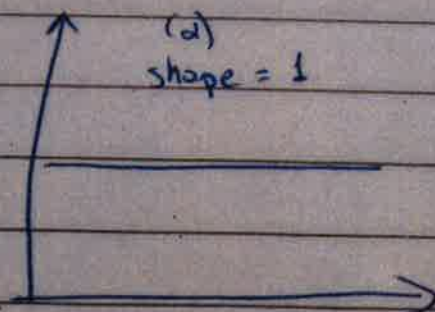 (d)
shape = 1